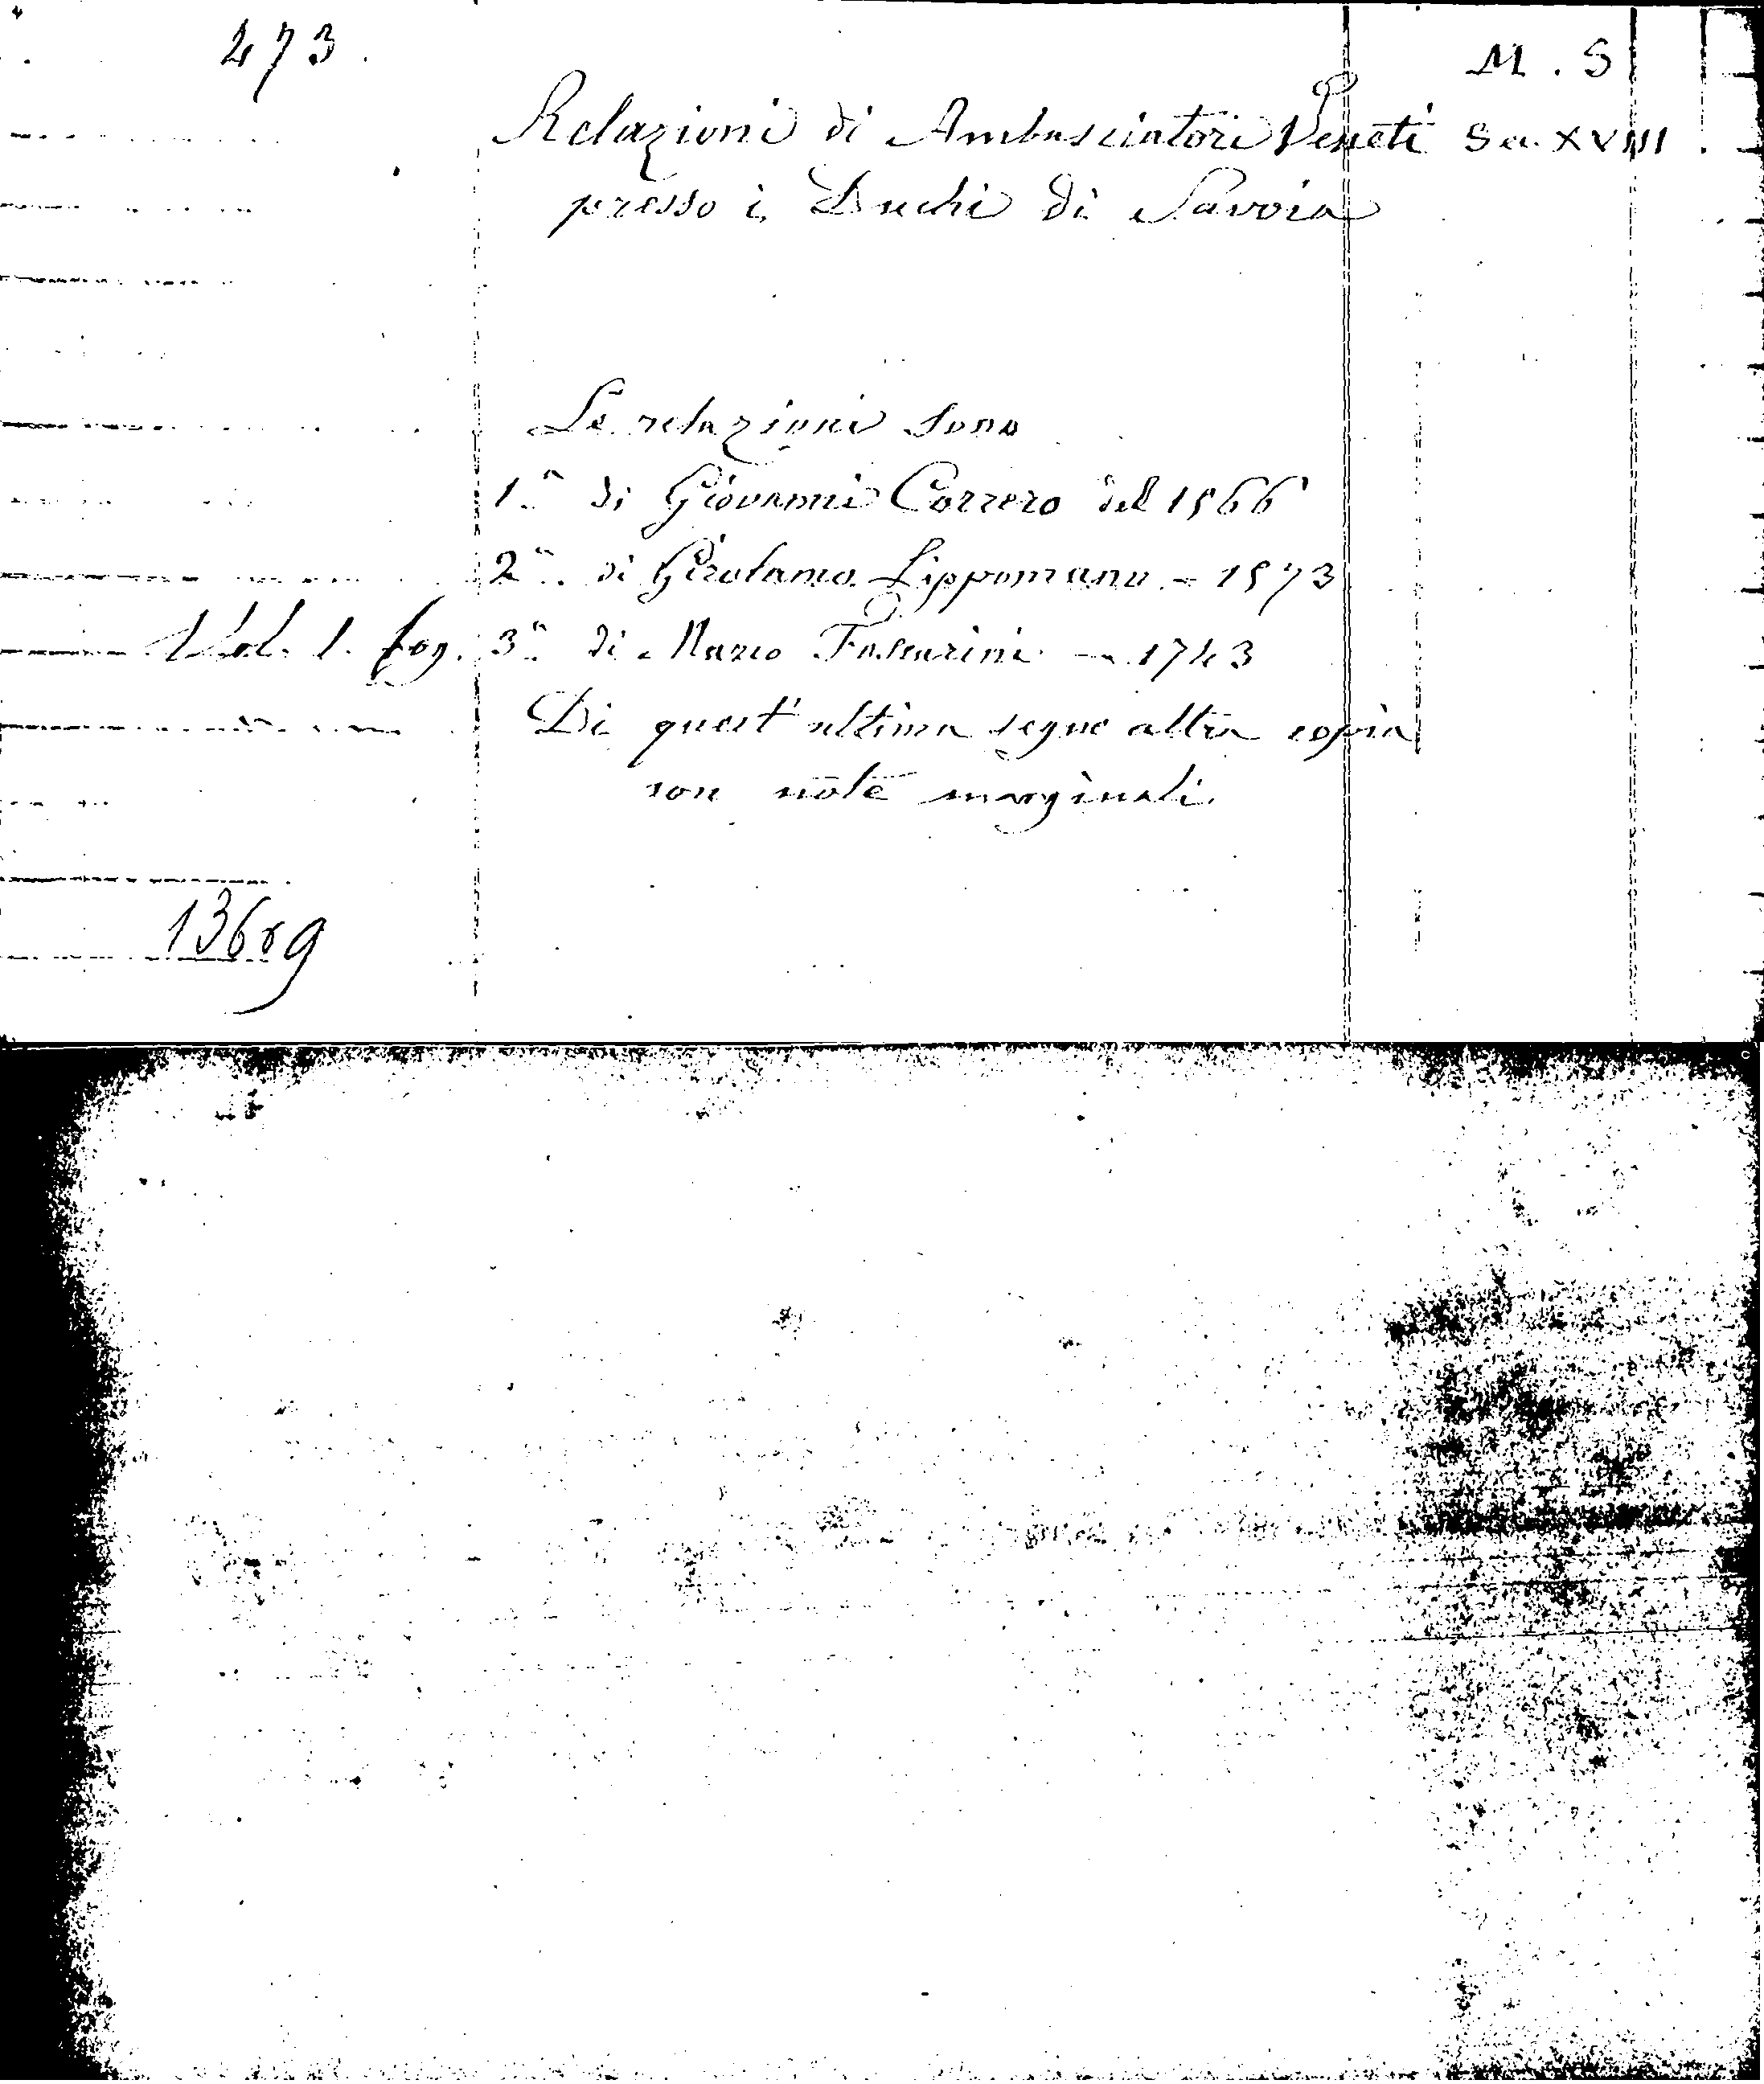 473.
M. S
Relazioni di Ambasciatori Veneti Sec. XVIII
presso i Duchi di Savoia
Le relazioni sono
1ª di Giovanni Correro del 1566
2ª di Girolamo Lippomano - 1573
Vol. 1. fog. 3ª di Marco Foscarini - 1743
Di quest' ultima segue altra copia
con note marginali.
13689